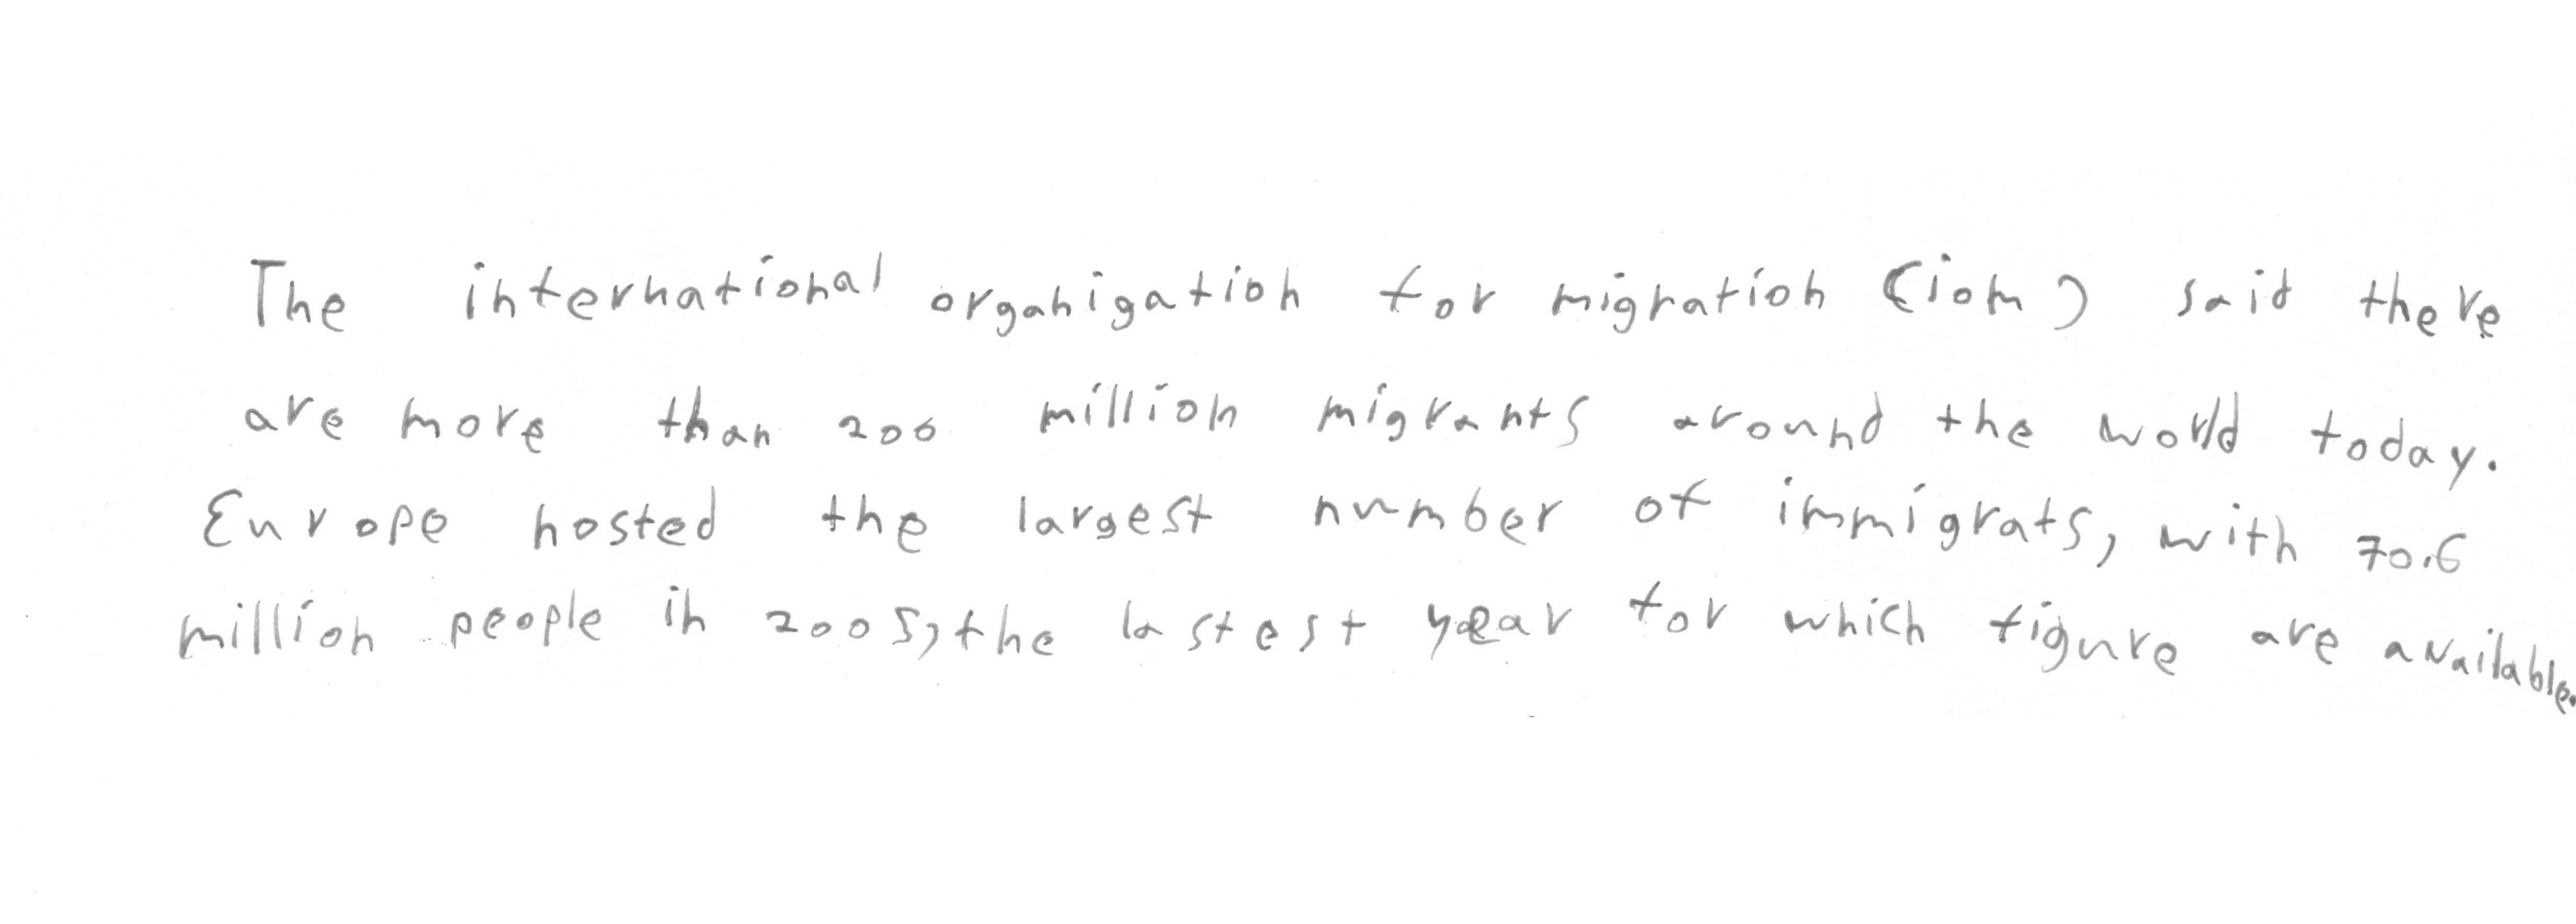 The international organigation for migration (iom) said there
are more than 200 million migrants around the world today.
Europe hosted the largest number of immigrats, with 70.6
million people in 2005, the lastest year for which figure are available.